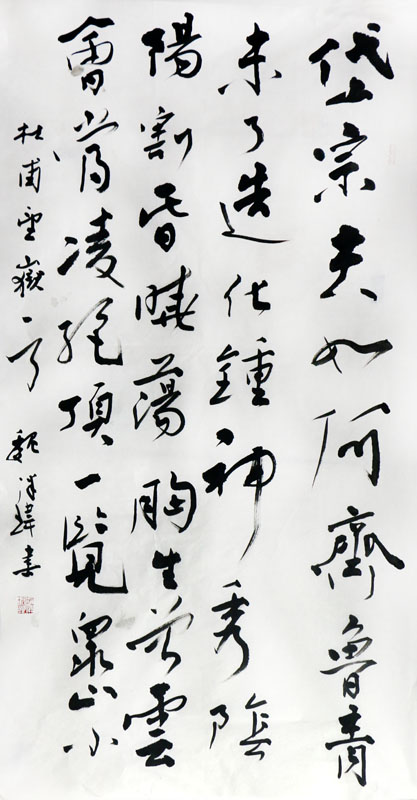 岱宗夫如何齊魯青
未了造化鍾神秀陰
陽割昏曉蕩胸生曾雲
會當凌絕頂一覽眾山小
杜甫望嶽一首 魏瑋書